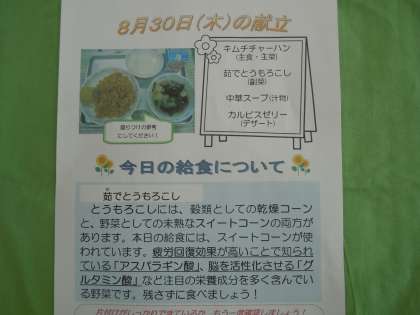 8月30日(木)の献立
キムチチャーハン
(主食・主菜)
茹でとうもろこし
(副菜)
中華スープ(汁物)
カルピスゼリー
(デザート)
盛りつけの参考
にしてください!
今日の給食について
茹でとうもろこし
とうもろこしには、穀類としての乾燥コーン
と、野菜としての未熟なスイートコーンの両方が
あります。本日の給食には、スイートコーンが使
われています。疲労回復効果が高いことで知られ
ている「アスパラギン酸」、脳を活性化させる「グ
ルタミン酸」など注目の栄養成分を多く含んでい
る野菜です。残さずに食べましょう!